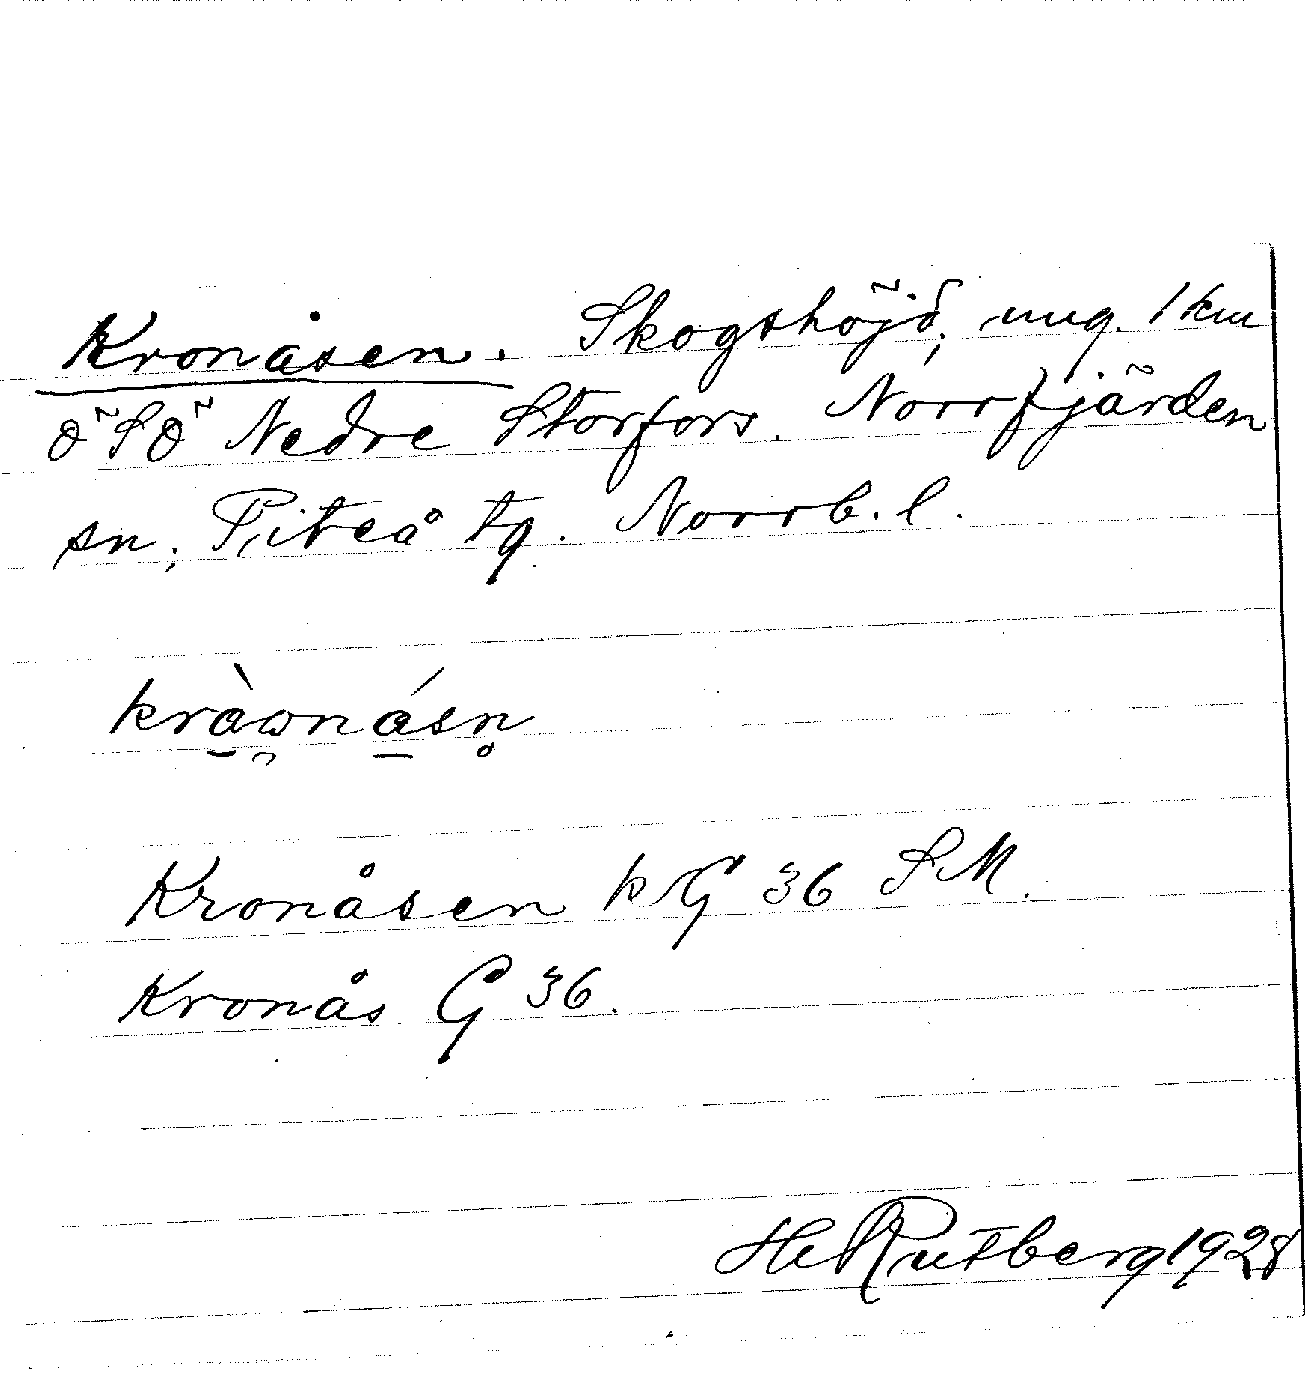 Kronåsen. Skogshöjd, ung. 1 km
ö S ö Nedre Storfors. Norrfjärden
sn, Piteå tg. Norrb. l.
kràwnásn̥
Kronåsen k G 36 SM.
Kronås G 36.
He Rutberg 1928